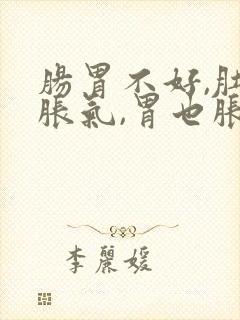 腸胃不好,肚
脹氣,胃也脹
李麗媛